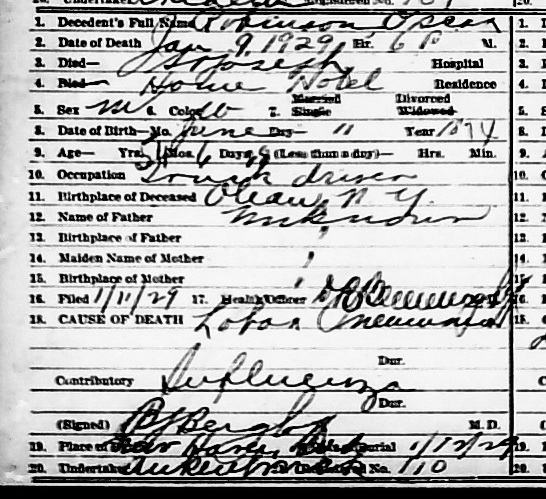 1. Decedent's Full Name Robinson Oscar
2. Date of Death Jan 9, 1929 Hr. 6 P M.
3. Died— St Joseph Hospital
4. Died— Home Hotel Residence
5. Sex M 6. Color 7. Married Single Divorced Widowed
8. Date of Birth—Mo. June Day— 11 Year 1874
9. Age— Yrs. 54 Mos. 6 Days (Less than a day)— Hrs. Min.
10. Occupation Truck driver
11. Birthplace of Deceased Olean, N Y.
12. Name of Father Unknown
13. Birthplace of Father "
14. Maiden Name of Mother "
15. Birthplace of Mother "
16. Filed 1/11/29 17. Health Officer
18. CAUSE OF DEATH Lobar Pneumonia
Dur.
Contributory Influenza
Dur.
(Signed) M. D.
19. Place of Haven Burial 1/12/29
20. Undertaker No. 110